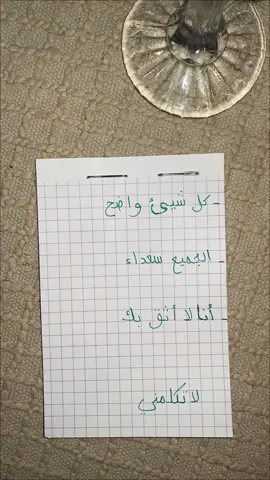 - كل شيئ واضح
- الجميع سعداء
- أنا لا أثق بك
لا تكلمني